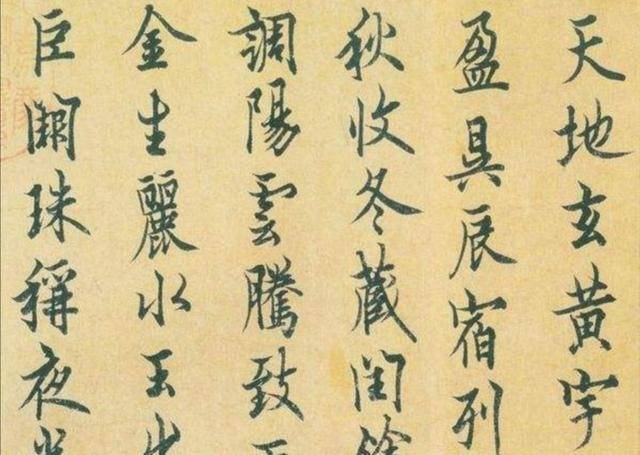 天地玄黃宇
盈昃辰宿列
秋收冬藏閏餘
調陽雲騰致雨
金生麗水玉出
巨闕珠稱夜光